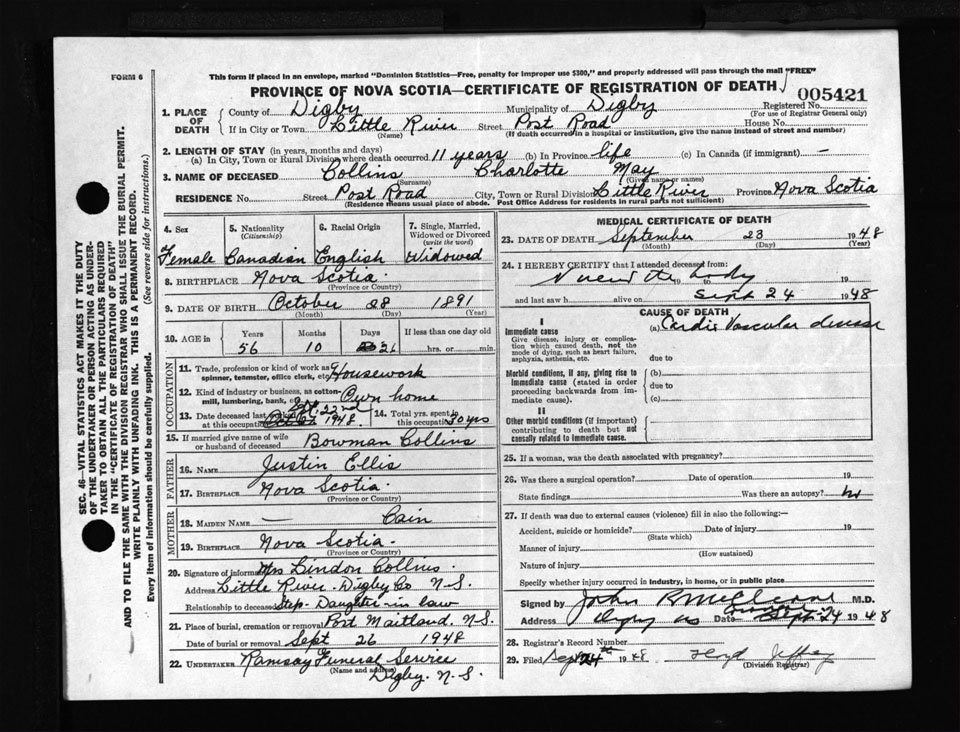 FORM 6
This form if placed in an envelope, marked "Dominion Statistics—Free, penalty for improper use $300," and properly addressed will pass through the mail "FREE"
PROVINCE OF NOVA SCOTIA—CERTIFICATE OF REGISTRATION OF DEATH
005421
1. PLACE OF DEATH
County of Digby Municipality of Digby Registered No.
(For use of Registrar General only)
If in City or Town Little River Street Post Road House No.
(Name) (If death occurred in a hospital or institution, give the name instead of street and number)
2. LENGTH OF STAY (in years, months and days)
(a) In City, Town or Rural Division where death occurred 11 years (b) In Province life (c) In Canada (if immigrant) —
3. NAME OF DECEASED Collins Charlotte May
(Surname) (Given name or names)
RESIDENCE No. Street Post Road City, Town or Rural Division Little River Province Nova Scotia
(Residence means usual place of abode. Post Office Address for residents in rural parts not sufficient)
4. Sex
Female
5. Nationality
(Citizenship)
Canadian
6. Racial Origin
English
7. Single, Married, Widowed or Divorced
(write the word)
Widowed
8. BIRTHPLACE Nova Scotia.
(Province or Country)
9. DATE OF BIRTH October 28 1891
(Month) (Day) (Year)
10. AGE in
Years Months Days If less than one day old
56 10 26 hrs. or min.
OCCUPATION
11. Trade, profession or kind of work as spinner, teamster, office clerk, etc. Housework
12. Kind of industry or business, as cotton mill, lumbering, bank, etc. Own home
13. Date deceased last at this occupation Sept 22nd 1948
14. Total yrs. spent in this occupation 30 yrs
15. If married give name of wife or husband of deceased Bowman Collins
FATHER
16. NAME Justin Ellis
17. BIRTHPLACE Nova Scotia.
(Province or Country)
MOTHER
18. MAIDEN NAME — Cain
19. BIRTHPLACE Nova Scotia.
(Province or Country)
20. Signature of informant Mrs Lindon Collins.
Address Little River. Digby Co N.S.
Relationship to deceased Step-Daughter-in law
21. Place of burial, cremation or removal Port Maitland. N.S.
Date of burial or removal Sept 26 1948
22. UNDERTAKER Ramsay Funeral Service
(Name and address)
Digby. N.S.
MEDICAL CERTIFICATE OF DEATH
23. DATE OF DEATH September 23 1948
(Month) (Day) (Year)
24. I HEREBY CERTIFY that I attended deceased from:
Viewed the body
19 to 19
and last saw h alive on Sept 24 1948
CAUSE OF DEATH
I
Immediate cause
Give disease, injury or complication which caused death, not the mode of dying, such as heart failure, asphyxia, asthenia, etc.
(a) Cardio Vascular disease
due to
Morbid conditions, if any, giving rise to immediate cause (stated in order proceeding backwards from immediate cause).
(b)
due to
(c)
II
Other morbid conditions (if important) contributing to death but not causally related to immediate cause.
25. If a woman, was the death associated with pregnancy?
26. Was there a surgical operation? Date of operation 19
State findings Was there an autopsy? no
27. If death was due to external causes (violence) fill in also the following:—
Accident, suicide or homicide? Date of injury 19
(State which)
Manner of injury
(How sustained)
Nature of injury
Specify whether injury occurred in industry, in home, or in public place
Signed by John M.D.
Address Date Sept 24 1948
28. Registrar's Record Number
29. Filed Sept 24th 1948
(Division Registrar)
SEC. 46—VITAL STATISTICS ACT MAKES IT THE DUTY
OF THE UNDERTAKER OR PERSON ACTING AS UNDER-
TAKER TO OBTAIN ALL THE PARTICULARS REQUIRED
IN THE "CERTIFICATE OF REGISTRATION OF DEATH"
AND TO FILE THE SAME WITH THE DIVISION REGISTRAR WHO SHALL ISSUE THE BURIAL PERMIT.
WRITE PLAINLY WITH UNFADING INK. THIS IS A PERMANENT RECORD.
Every item of information should be carefully supplied. (See reverse side for instructions.)